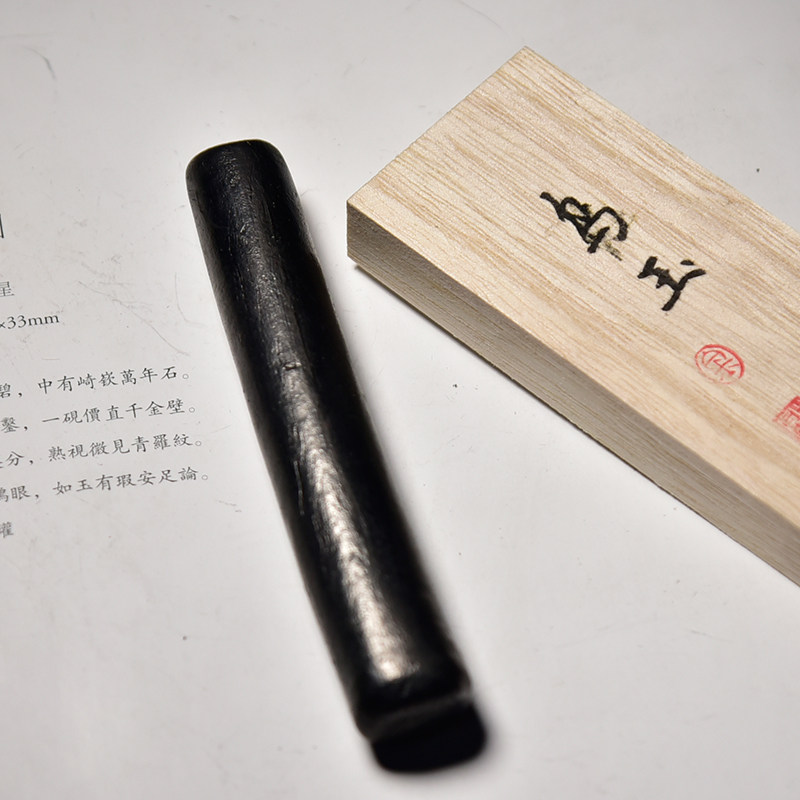 星
×33mm
碧，中有崎嶔萬年石。
鑿，一硯價直千金壁。
分，熟視微見青羅紋。
眼，如玉有瑕安足論。
烏玉